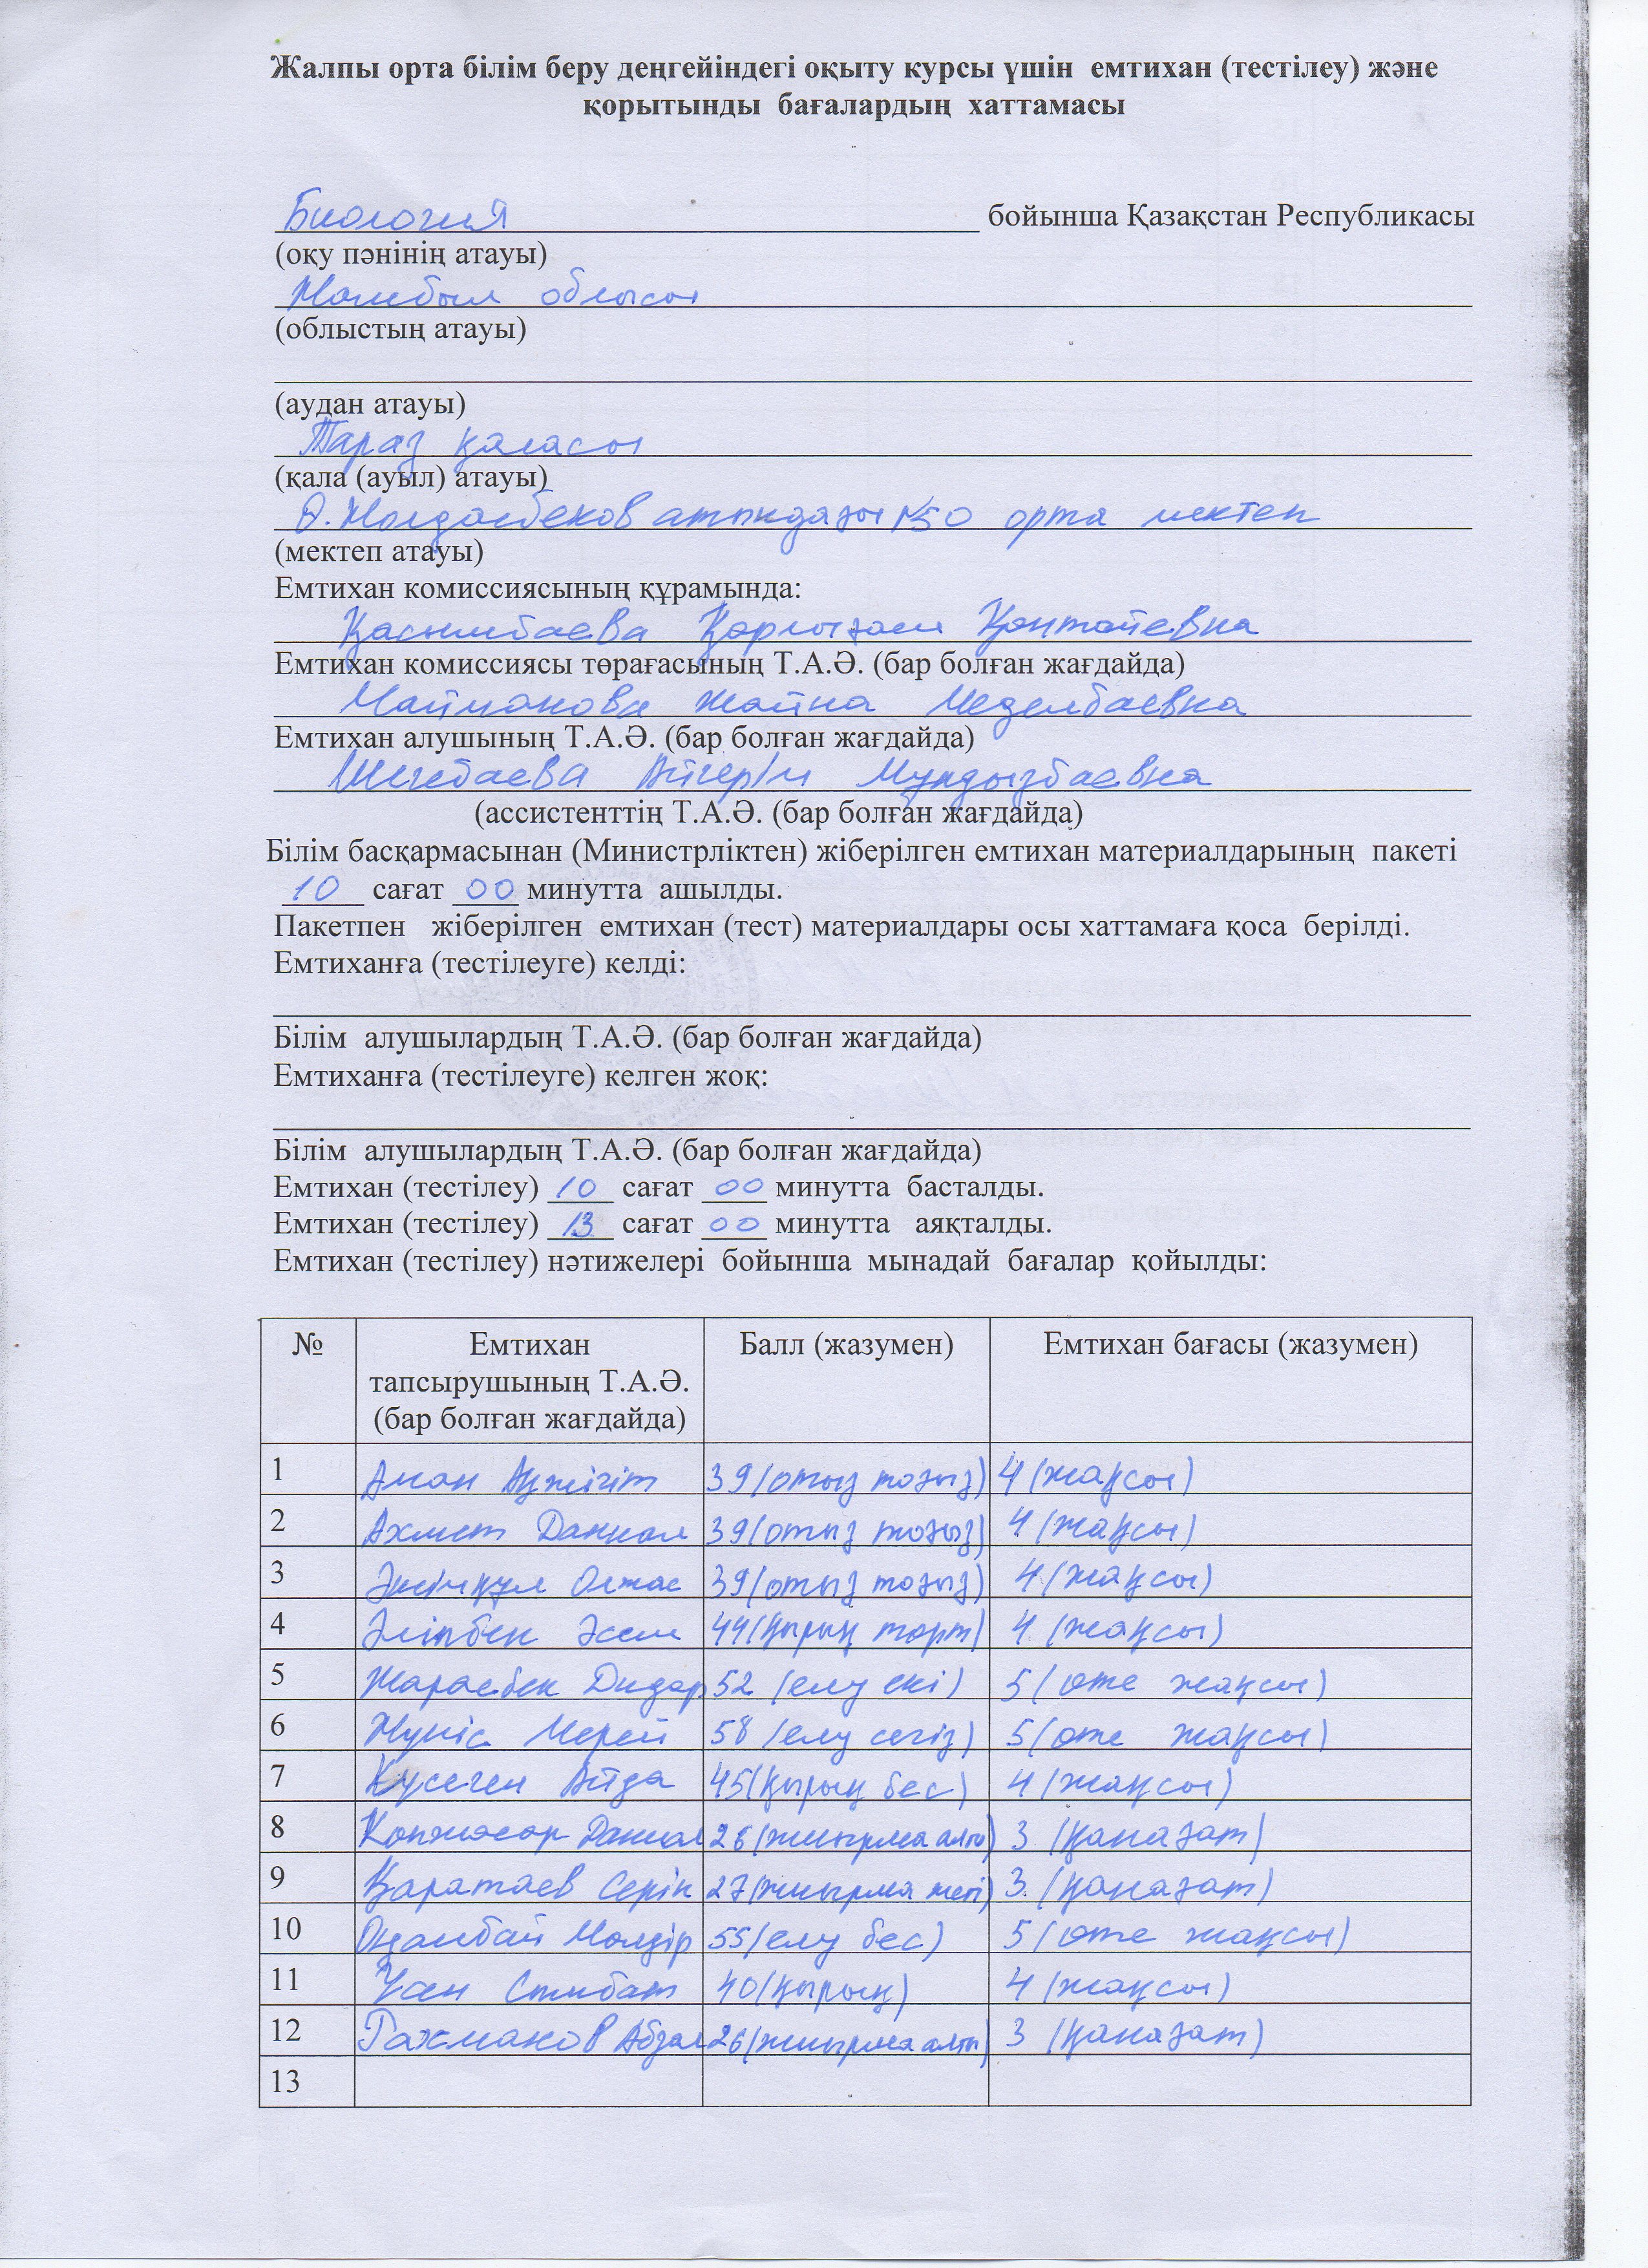 Жалпы орта білім беру деңгейіндегі оқыту курсы үшін емтихан (тестілеу) және
қорытынды бағалардың хаттамасы
Биология бойынша Қазақстан Республикасы
(оқу пәнінің атауы)
Жамбыл облысы
(облыстың атауы)
(аудан атауы)
Тараз қаласы
(қала (ауыл) атауы)
Ә.Жолдасбеков атындағы №50 орта мектеп
(мектеп атауы)
Емтихан комиссиясының құрамында:
Қасымбаева Қарлығаш Қонтайевна
Емтихан комиссиясы төрағасының Т.А.Ә. (бар болған жағдайда)
Майманова Жайна
Емтихан алушының Т.А.Ә. (бар болған жағдайда)
Айгерім
(ассистенттің Т.А.Ә. (бар болған жағдайда)
Білім басқармасынан (Министрліктен) жіберілген емтихан материалдарының пакеті
10 сағат 00 минутта ашылды.
Пакетпен жіберілген емтихан (тест) материалдары осы хаттамаға қоса берілді.
Емтиханға (тестілеуге) келді:
Білім алушылардың Т.А.Ә. (бар болған жағдайда)
Емтиханға (тестілеуге) келген жоқ:
Білім алушылардың Т.А.Ә. (бар болған жағдайда)
Емтихан (тестілеу) 10 сағат 00 минутта басталды.
Емтихан (тестілеу) 13 сағат 00 минутта аяқталды.
Емтихан (тестілеу) нәтижелері бойынша мынадай бағалар қойылды:
№ Емтихан тапсырушының Т.А.Ә. (бар болған жағдайда) Балл (жазумен) Емтихан бағасы (жазумен)
1 Аман Ақжігіт 39 (отыз тоғыз) 4 (жақсы)
2 Ахмет Даниал 39 (отыз тоғыз) 4 (жақсы)
3 Әшімқұл Олжас 39 (отыз тоғыз) 4 (жақсы)
4 Әліпбек Әсем 44 (қырық төрт) 4 (жақсы)
5 Жарасбек Дидар 52 (елу екі) 5 (өте жақсы)
6 Жүніс Мерей 58 (елу сегіз) 5 (өте жақсы)
7 Күсеген Айда 45 (қырық бес) 4 (жақсы)
8 Көпжасар Даниал 26 (жиырма алты) 3 (қанағат)
9 Қаратаев Серік 27 (жиырма жеті) 3 (қанағат)
10 Оңалбай Мөлдір 55 (елу бес) 5 (өте жақсы)
11 Сымбат 40 (қырық) 4 (жақсы)
12 Рахманов Абзал 26 (жиырма алты) 3 (қанағат)
13